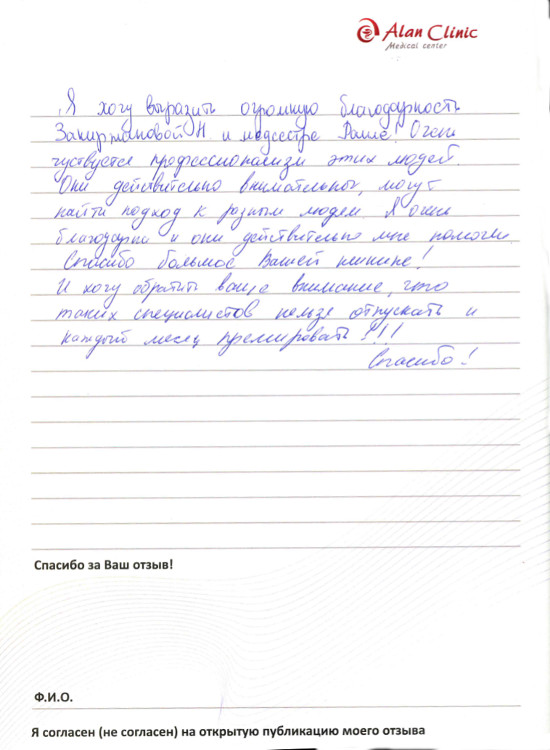 Alan Clinic
Medical center
Я хочу выразить огромную благодарность
Закиржановой Н и медсестре Раиле! Очень
чуствуется профессионализм этих людей.
Они действительно внимательны, могут
найти подход к разным людем. Я очень
благодарна и они действительно мне помогли.
Спасибо большое Вашей клинике!
И хочу обратить ваше внимание, что
таких специалистов нельзе отпускать и
каждый месец премировать!!!
Спасибо!
Спасибо за Ваш отзыв!
Ф.И.О.
Я согласен (не согласен) на открытую публикацию моего отзыва